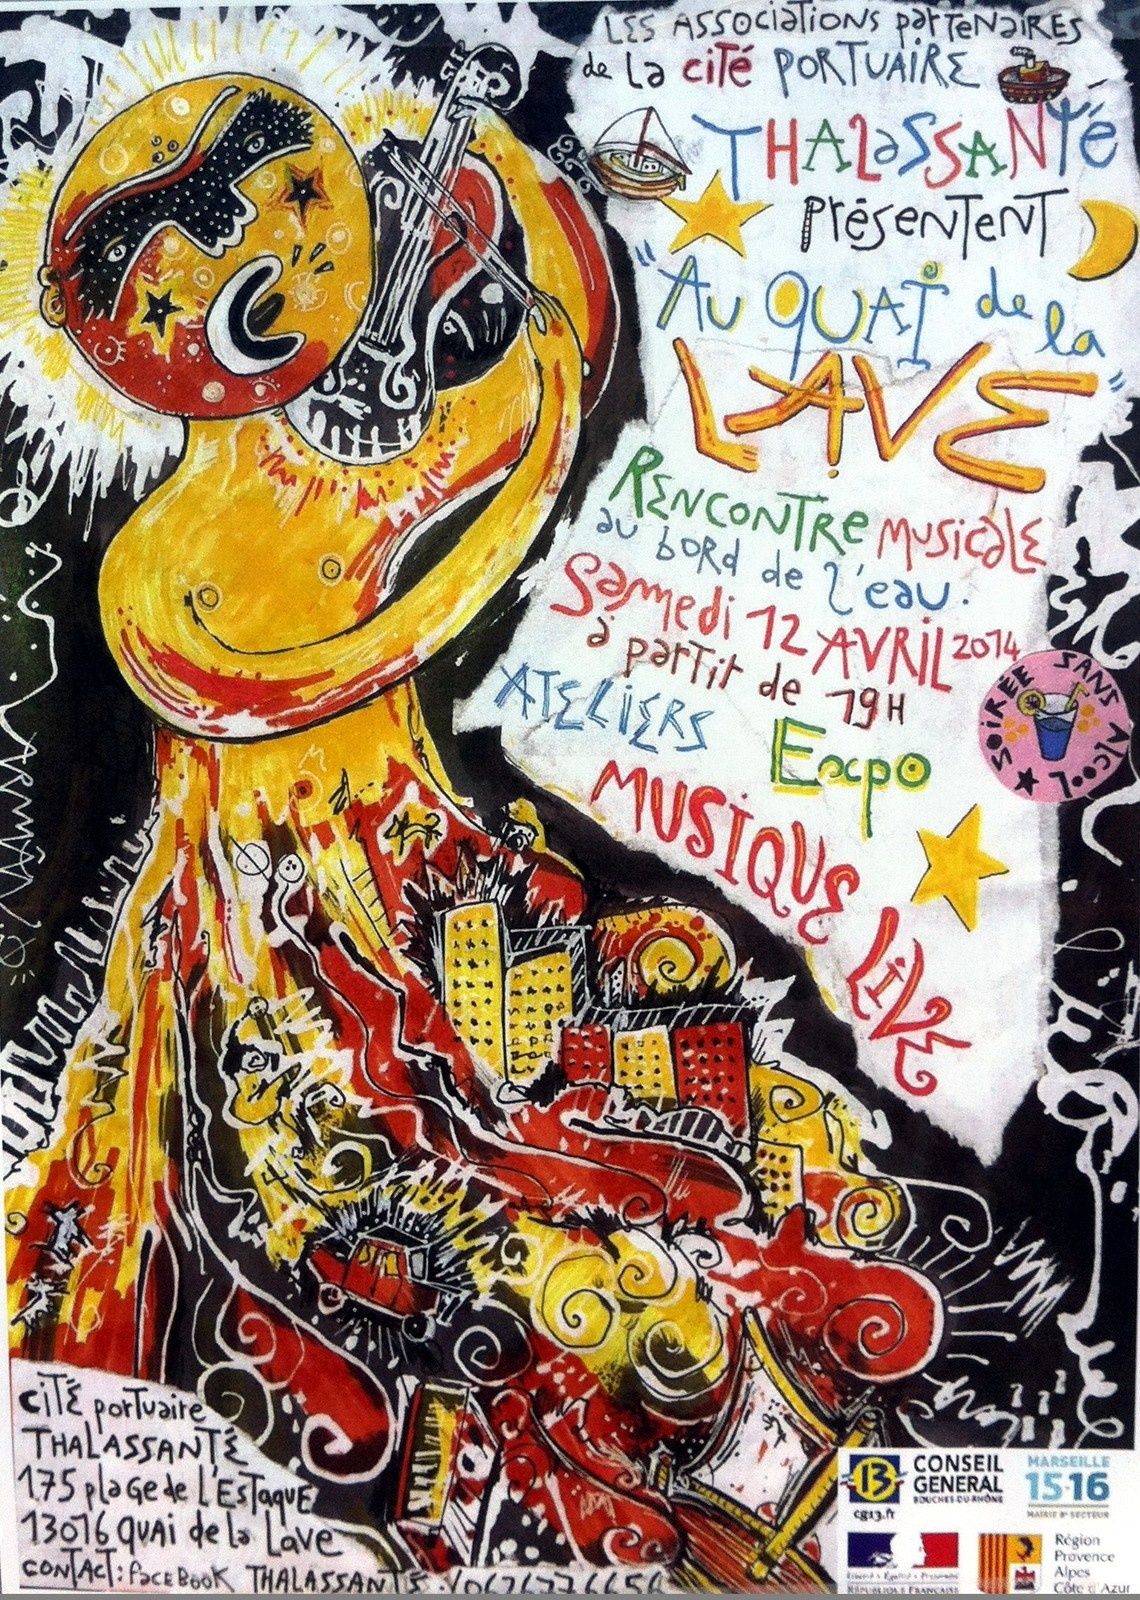 LES ASSOCIATIONS partENAIRES
de La cité PORTUAIRE
THALASSANTÉ
présentent
"Au QUAI de la
LAVE"
RENCONTRE musicale
au bord de l'eau.
Samedi 12 AVRIL 2014
à partir de 19H
ATELIERS Expo
SOIRÉE SANS ALCOOL
MUSIQUE LIVE
CITÉ portuaire
THALASSANTÉ
175 plage de L'ESTAQUE
13016 QUAI de la Lave
CONTACT: FACEBOOK THALASSANTÉ
13 CONSEIL
GENERAL
BOUCHES-DU-RHÔNE
cg13.fr
MARSEILLE
15·16
MAIRIE 8e SECTEUR
Liberté • Égalité • Fraternité
RÉPUBLIQUE FRANÇAISE
Région
Provence
Alpes
Côte d'Azur